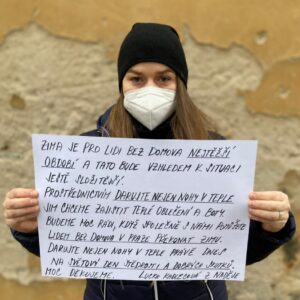 ZIMA JE PRO LIDI BEZ DOMOVA NEJTĚŽŠÍ
OBDOBÍ A TATO BUDE VZHLEDEM K SITUACI
JEŠTĚ SLOŽITĚJŠÍ.
PROSTŘEDNICTVÍM DARUJTE NEJEN NOHY V TEPLE
JIM CHCEME ZAJISTIT TEPLÉ OBLEČENÍ A BOTY.
BUDEME MOC RÁDI, KDYŽ SPOLEČNĚ S NÁMI POMŮŽETE
LIDEM BEZ DOMOVA V PRAZE PŘEKONAT ZIMU.
DARUJTE NEJEN NOHY V TEPLE PRÁVĚ DNES
NA SVĚTOVÝ DEN ŠTĚDROSTI A DOBRÝCH SKUTKŮ.
MOC DĚKUJEME. LUCKA Z NADĚJE